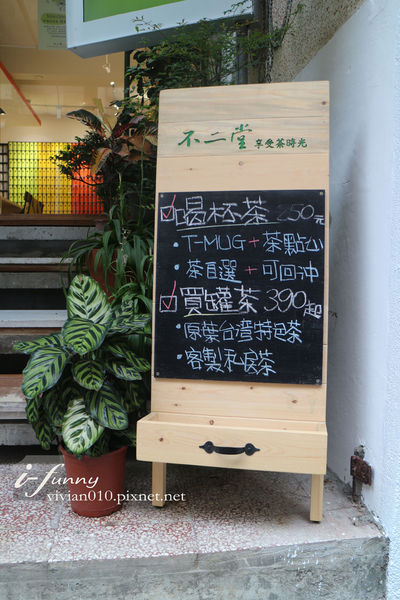 不二堂 享受茶時光
☑喝杯茶 250元
・T-MUG+茶點心
・茶自選+可回沖
☑買罐茶390起
・原葉台灣特色茶
・客製私房茶
i-funny
vivian010.pixnet.net